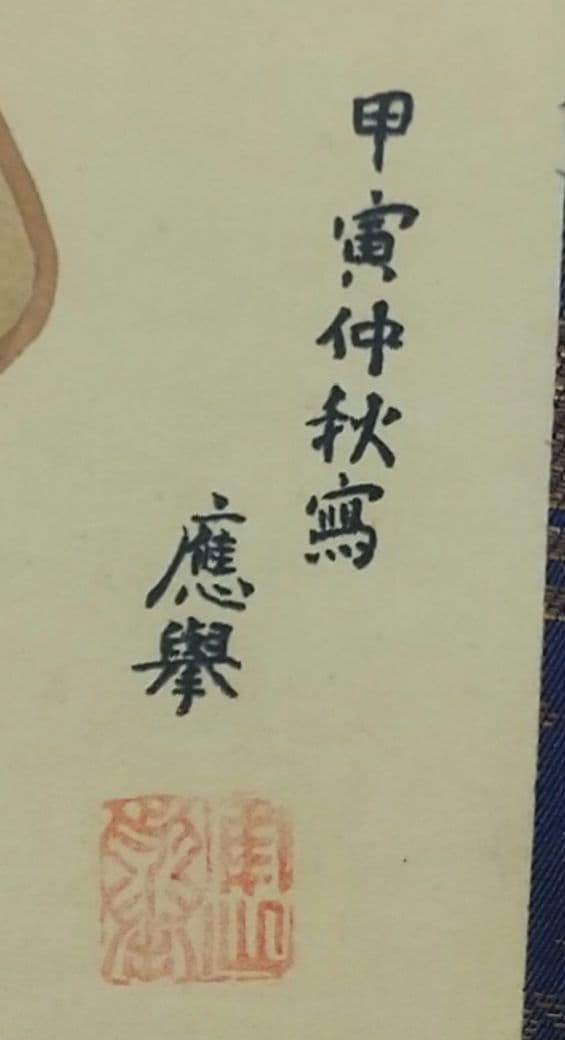 甲寅仲秋寫
應擧